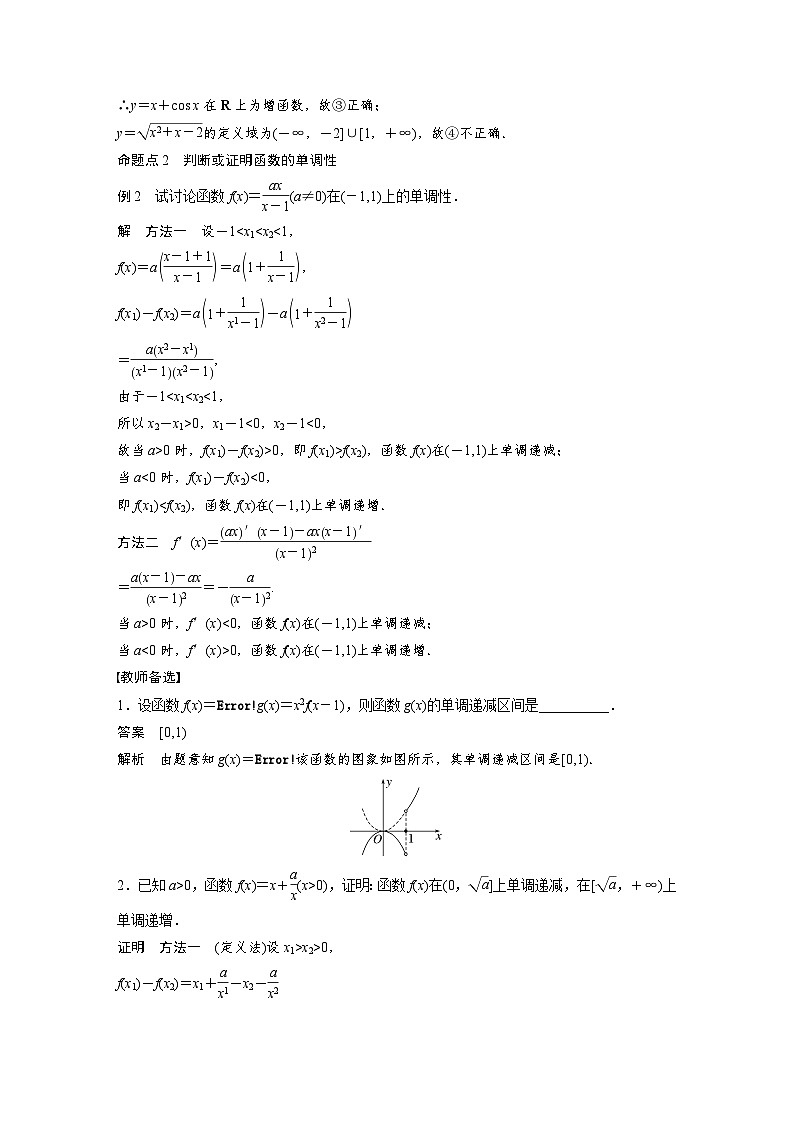 ∴y＝x＋cos x在R上为增函数，故③正确；
y＝√(x²＋x－2)的定义域为(－∞，－2]∪[1，＋∞)，故④不正确．
命题点2　判断或证明函数的单调性
例2　试讨论函数f(x)＝ax/(x－1)(a≠0)在(－1,1)上的单调性．
解　方法一　设－1<x₁<x₂<1，
f(x)＝a((x－1＋1)/(x－1))＝a(1＋1/(x－1))，
f(x₁)－f(x₂)＝a(1＋1/(x1－1))－a(1＋1/(x2－1))
＝a(x2－x1)/((x1－1)(x2－1))，
由于－1<x₁<x₂<1，
所以x₂－x₁>0，x₁－1<0，x₂－1<0，
故当a>0时，f(x₁)－f(x₂)>0，即f(x₁)>f(x₂)，函数f(x)在(－1,1)上单调递减；
当a<0时，f(x₁)－f(x₂)<0，
即f(x₁)<f(x₂)，函数f(x)在(－1,1)上单调递增．
方法二　f′(x)＝((ax)′(x－1)－ax(x－1)′)/(x－1)²
＝(a(x－1)－ax)/(x－1)²＝－a/(x－1)².
当a>0时，f′(x)<0，函数f(x)在(－1,1)上单调递减；
当a<0时，f′(x)>0，函数f(x)在(－1,1)上单调递增．
教师备选
1．设函数f(x)＝Error!g(x)＝x²f(x－1)，则函数g(x)的单调递减区间是__________．
答案　[0,1)
解析　由题意知g(x)＝Error!该函数的图象如图所示，其单调递减区间是[0,1)．
y
O 1 x
2．已知a>0，函数f(x)＝x＋a/x(x>0)，证明：函数f(x)在(0，√a]上单调递减，在[√a，＋∞)上
单调递增．
证明　方法一　(定义法)设x₁>x₂>0，
f(x₁)－f(x₂)＝x₁＋a/x1－x₂－a/x2